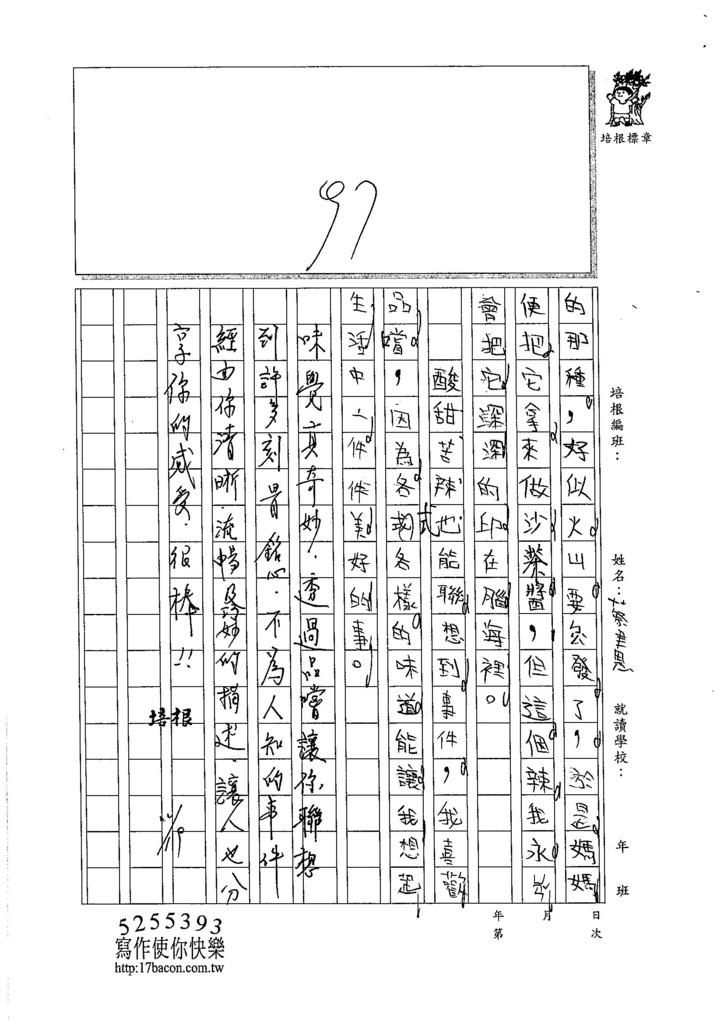 培根標章
97
培根編班：
姓名：蔡聿恩
就讀學校：
年 班
年 月 日
第 次
的那種，好似火山要忿發了，於是媽媽
便把它拿來做沙茶醬，但這個辣我永必
會把它深深的印在腦海裡。
酸甜苦辣也能聯想到事件，我喜歡
品嚐，因為各式各樣的味道能讓我想起
生活中一件件美好的事。
味覺真奇妙！透過品嚐讓你聯想
到許多刻骨銘心、不為人知的事件
經由你清晰、流暢的描述，讓人也分
享你的感受，很棒!!
培根
11/19
5255393
寫作使你快樂
http:17bacon.com.tw